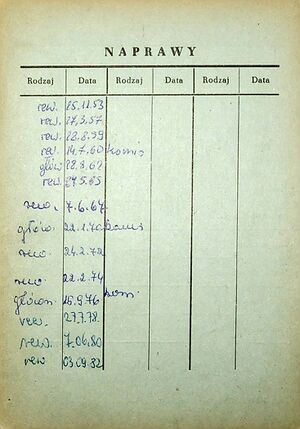 NAPRAWY
Rodzaj Data Rodzaj Data Rodzaj Data
rew. 25.11.53
rew. 27.3.57
rew. 28.8.59
rew. 14.7.60 komis
główn 28.8.62
rew. 24.5.65
rew. 7.6.67
główn. 22.1.70 komis
rew. 24.2.72
rew. 22.2.74
główn. 16.9.76 kom.
rew. 27.7.78.
rew. 7.06.80
rew 03.09.82